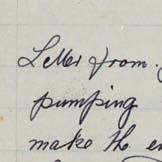 Letter from
pumping
make the en